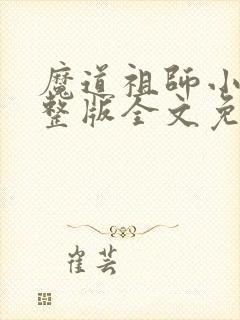 魔道祖師小
整版全文免
崔芸